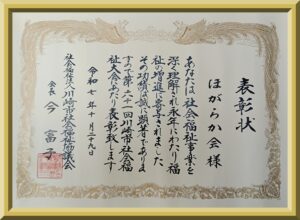 表彰状
ほがらか会様
あなたは社会福祉事業を
深く理解され永年にわたり福
祉の増進に寄与されました
その功績は誠に顕著であります
よって第二十一回川崎市社会福
祉大会にあたり表彰致します
令和七年十月二十九日
社会福祉法人川崎市社会福祉協議会
会長 今 富子